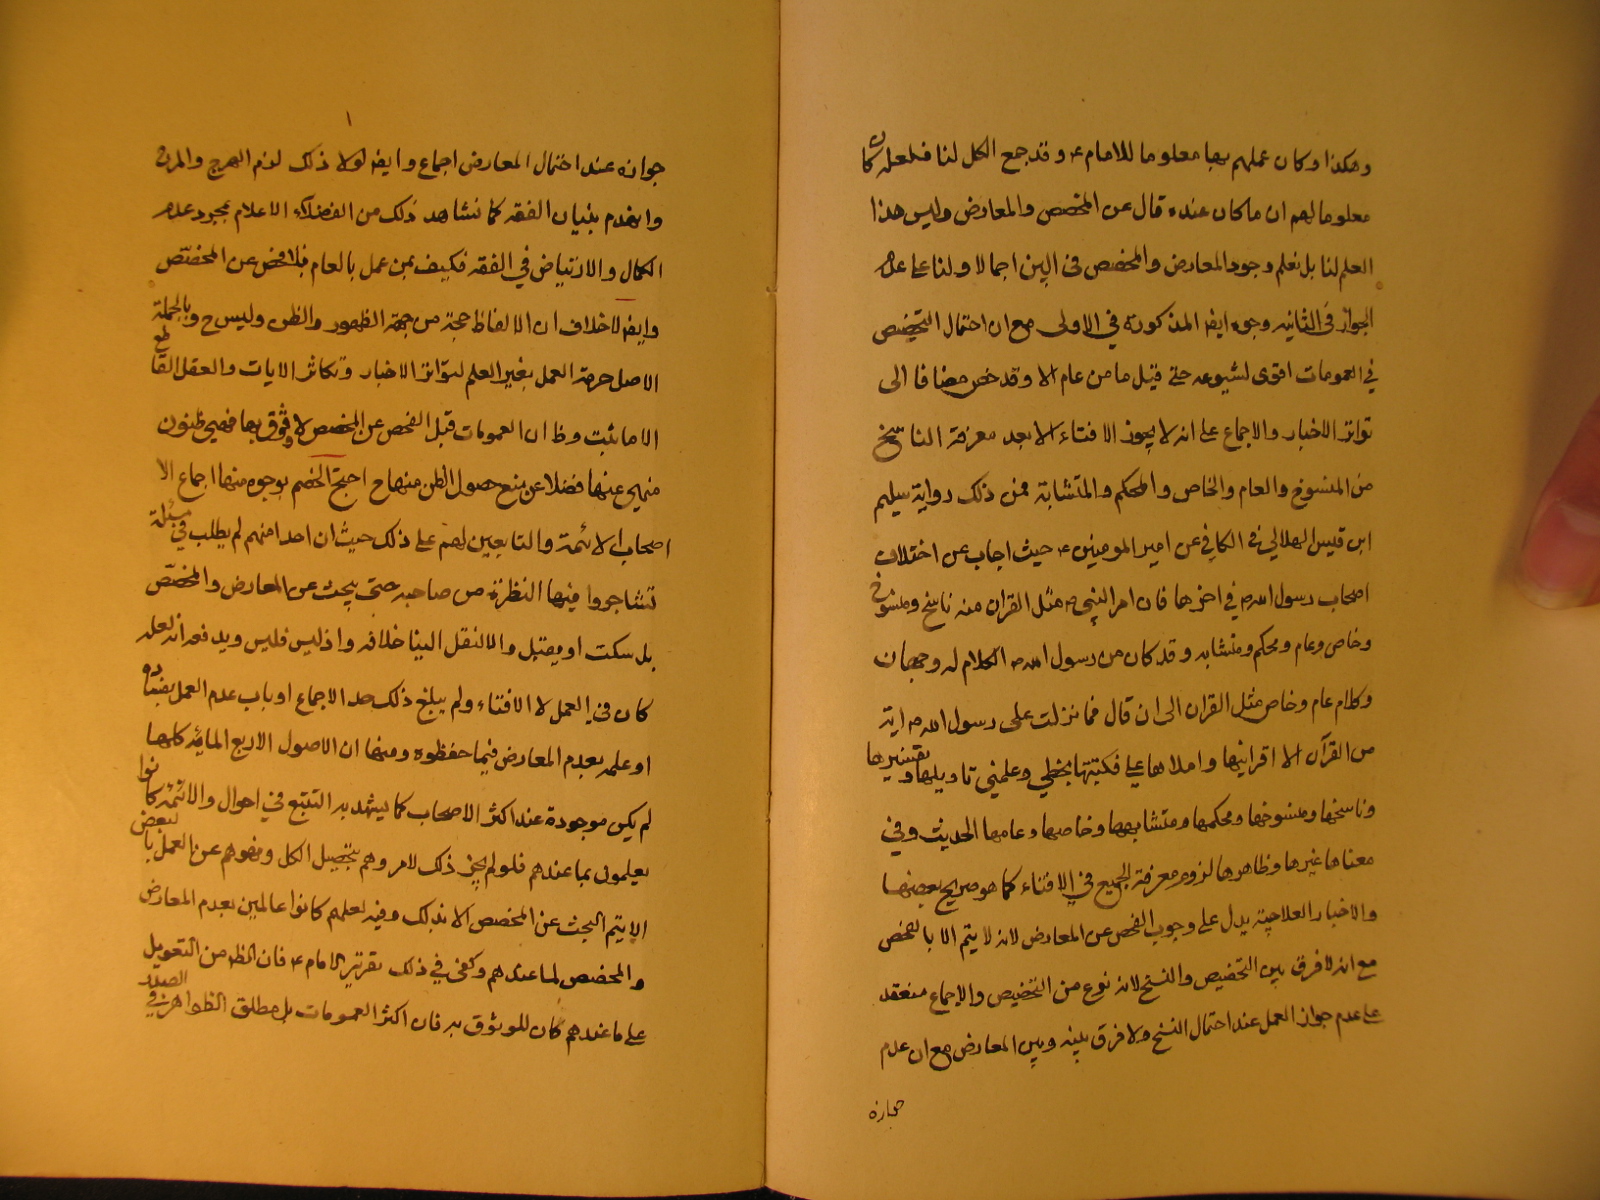 وهكذا وكان عملهم بها معلوما للامام ع وقد جمع الكل لنا فلعله كان
معلوما لهم ان ما كان عنده قال عن المخصص والمعارض وليس هذا
العلم لنا بل نعلم وجود المعارض والمخصص في البين اجمالا ولنا على عدم
الجواز في الثانيه وجوه ايضا المذكورة في الاولى مع ان احتمال التخصيص
في العمومات اقوى لشيوعه حتى قيل ما من عام الا وقد خص مضافا الى
تواتر الاخبار والاجماع على انه لا يجوز الافتاء الا بعد معرفة الناسخ
من المنسوخ والعام والخاص والمحكم والمتشابه فمن ذلك رواية سليم
ابن قيس الهلالي في الكافي عن امير المومنين ع حيث اجاب عن اختلاف
اصحاب رسول الله ص في اخرها فان امر النبي ص مثل القران منه ناسخ ومنسوخ
وخاص وعام ومحكم ومتشابه وقد كان من رسول الله ص الكلام له وجهان
وكلام عام وخاص مثل القران الى ان قال فما نزلت على رسول الله ص اية
من القرآن الا اقرانيها واملاها على فكتبتها بخطي وعلمني تاويلها وتفسيرها
وناسخها ومنسوخها ومحكمها ومتشابهها وخاصها وعامها الحديث وفي
معناها غيرها وظاهرها لزوم معرفة الجميع في الافتاء كما هو صريح بعضها
والاخبار العلاجية يدل على وجوب الفحص عن المعارض لانه لا يتم الا بالفحص
مع انه لا فرق بين التخصيص والنسخ لانه نوع من التخصيص والاجماع منعقد
على عدم جواز العمل عند احتمال النسخ ولا فرق بينه وبين المعارض مع ان عدم
جوازه
جوازه عند احتمال المعارض اجماع وايضا لولا ذلك لزم الهرج والمرج
وانهدم بنيان الفقه كما نشاهد ذلك من الفضلاء الاعلام بمجرد عدم
الكمال والارتياض في الفقه فكيف بمن عمل بالعام بلا فحص عن المخصص
وايضا لا خلاف ان الالفاظ حجة من جهة الظهور والظن وليس ح وبالجملة
الاصل حرمة العمل بغير العلم لتواتر الاخبار وتكاثر الايات والعقل القاطع
الا ما ثبت وظ ان العمومات قبل الفحص عن المخصص لا وثوق بها فهي ظنون
منهي عنها فضلا عن منع حصول الظن منها ح احتج الخصم بوجوه منها اجماع الا
اصحاب الائمة والتابعين لهم على ذلك حيث ان احدا منهم لم يطلب في مسئلة
تشاجروا فيها النظرة من صاحبه حتى يبحث عن المعارض والمخصص
بل سكت او يقبل والا لنقل الينا خلافه واذ ليس فليس ويدفعه انه لعله
كان في العمل لا الافتاء ولم يبلغ ذلك حد الاجماع او باب عدم العمل بفتياه
او علمه بعدم المعارض فيما حفظوه ومنها ان الاصول الاربع المايه كلها
لم يكن موجودة عند اكثر الاصحاب كما يشهد به التتبع في احوال والائمة كانوا
يعلمون بما عندهم فلو لم يجز ذلك لامروهم بتحصيل الكل ونهوهم عن العمل بالبعض
اذ لا يتم البحث عن المخصص الا بذلك وفيه لعلهم كانوا عالمين بعدم المعارض
والمخصص لما عندهم وكفى في ذلك تقرير الامام ع فان الظ من التعويل
على ما عندهم كان للوثوق به فان اكثر العمومات بل مطلق الظواهر في الصدر